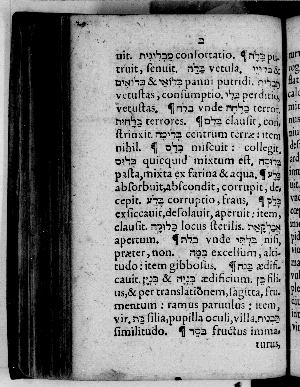 ב
uit. מבליגית confortatio. ¶ בלה pu-
truit, senuit. בלה vetula.
& בלואים panni putridi.
vetustas, consumptio. בלי perditio
vetustas. ¶ בלה vnde terror,
בלהות terrores. ¶ בלם clausit, con-
strinxit. בלימה centrum terræ: item
nihil. ¶ בלס miscuit: collegit.
בלוס quicquid mixtum est,
pasta, mixta ex farina & aqua. ¶ בלע
absorbuit, abscondit, corrupit, de-
cepit. בלע corruptio, fraus. ¶ בלק
exsiccauit, desolauit, aperuit: item,
clausit. בלוקה locus sterilis.
apertum. ¶ vnde בלתי nisi,
præter, non. ¶ במה excelsum, alti-
tudo: item gibbosus. ¶ בנה ædifi-
cauit. בניה & בנין ædificium. בן fili-
us, & per translationem, sagitta, fru-
mentum: ramus parutilus: item,
vir. בת filia, pupilla oculi, villa.
similitudo. ¶ בסר fructus imma-
turus,